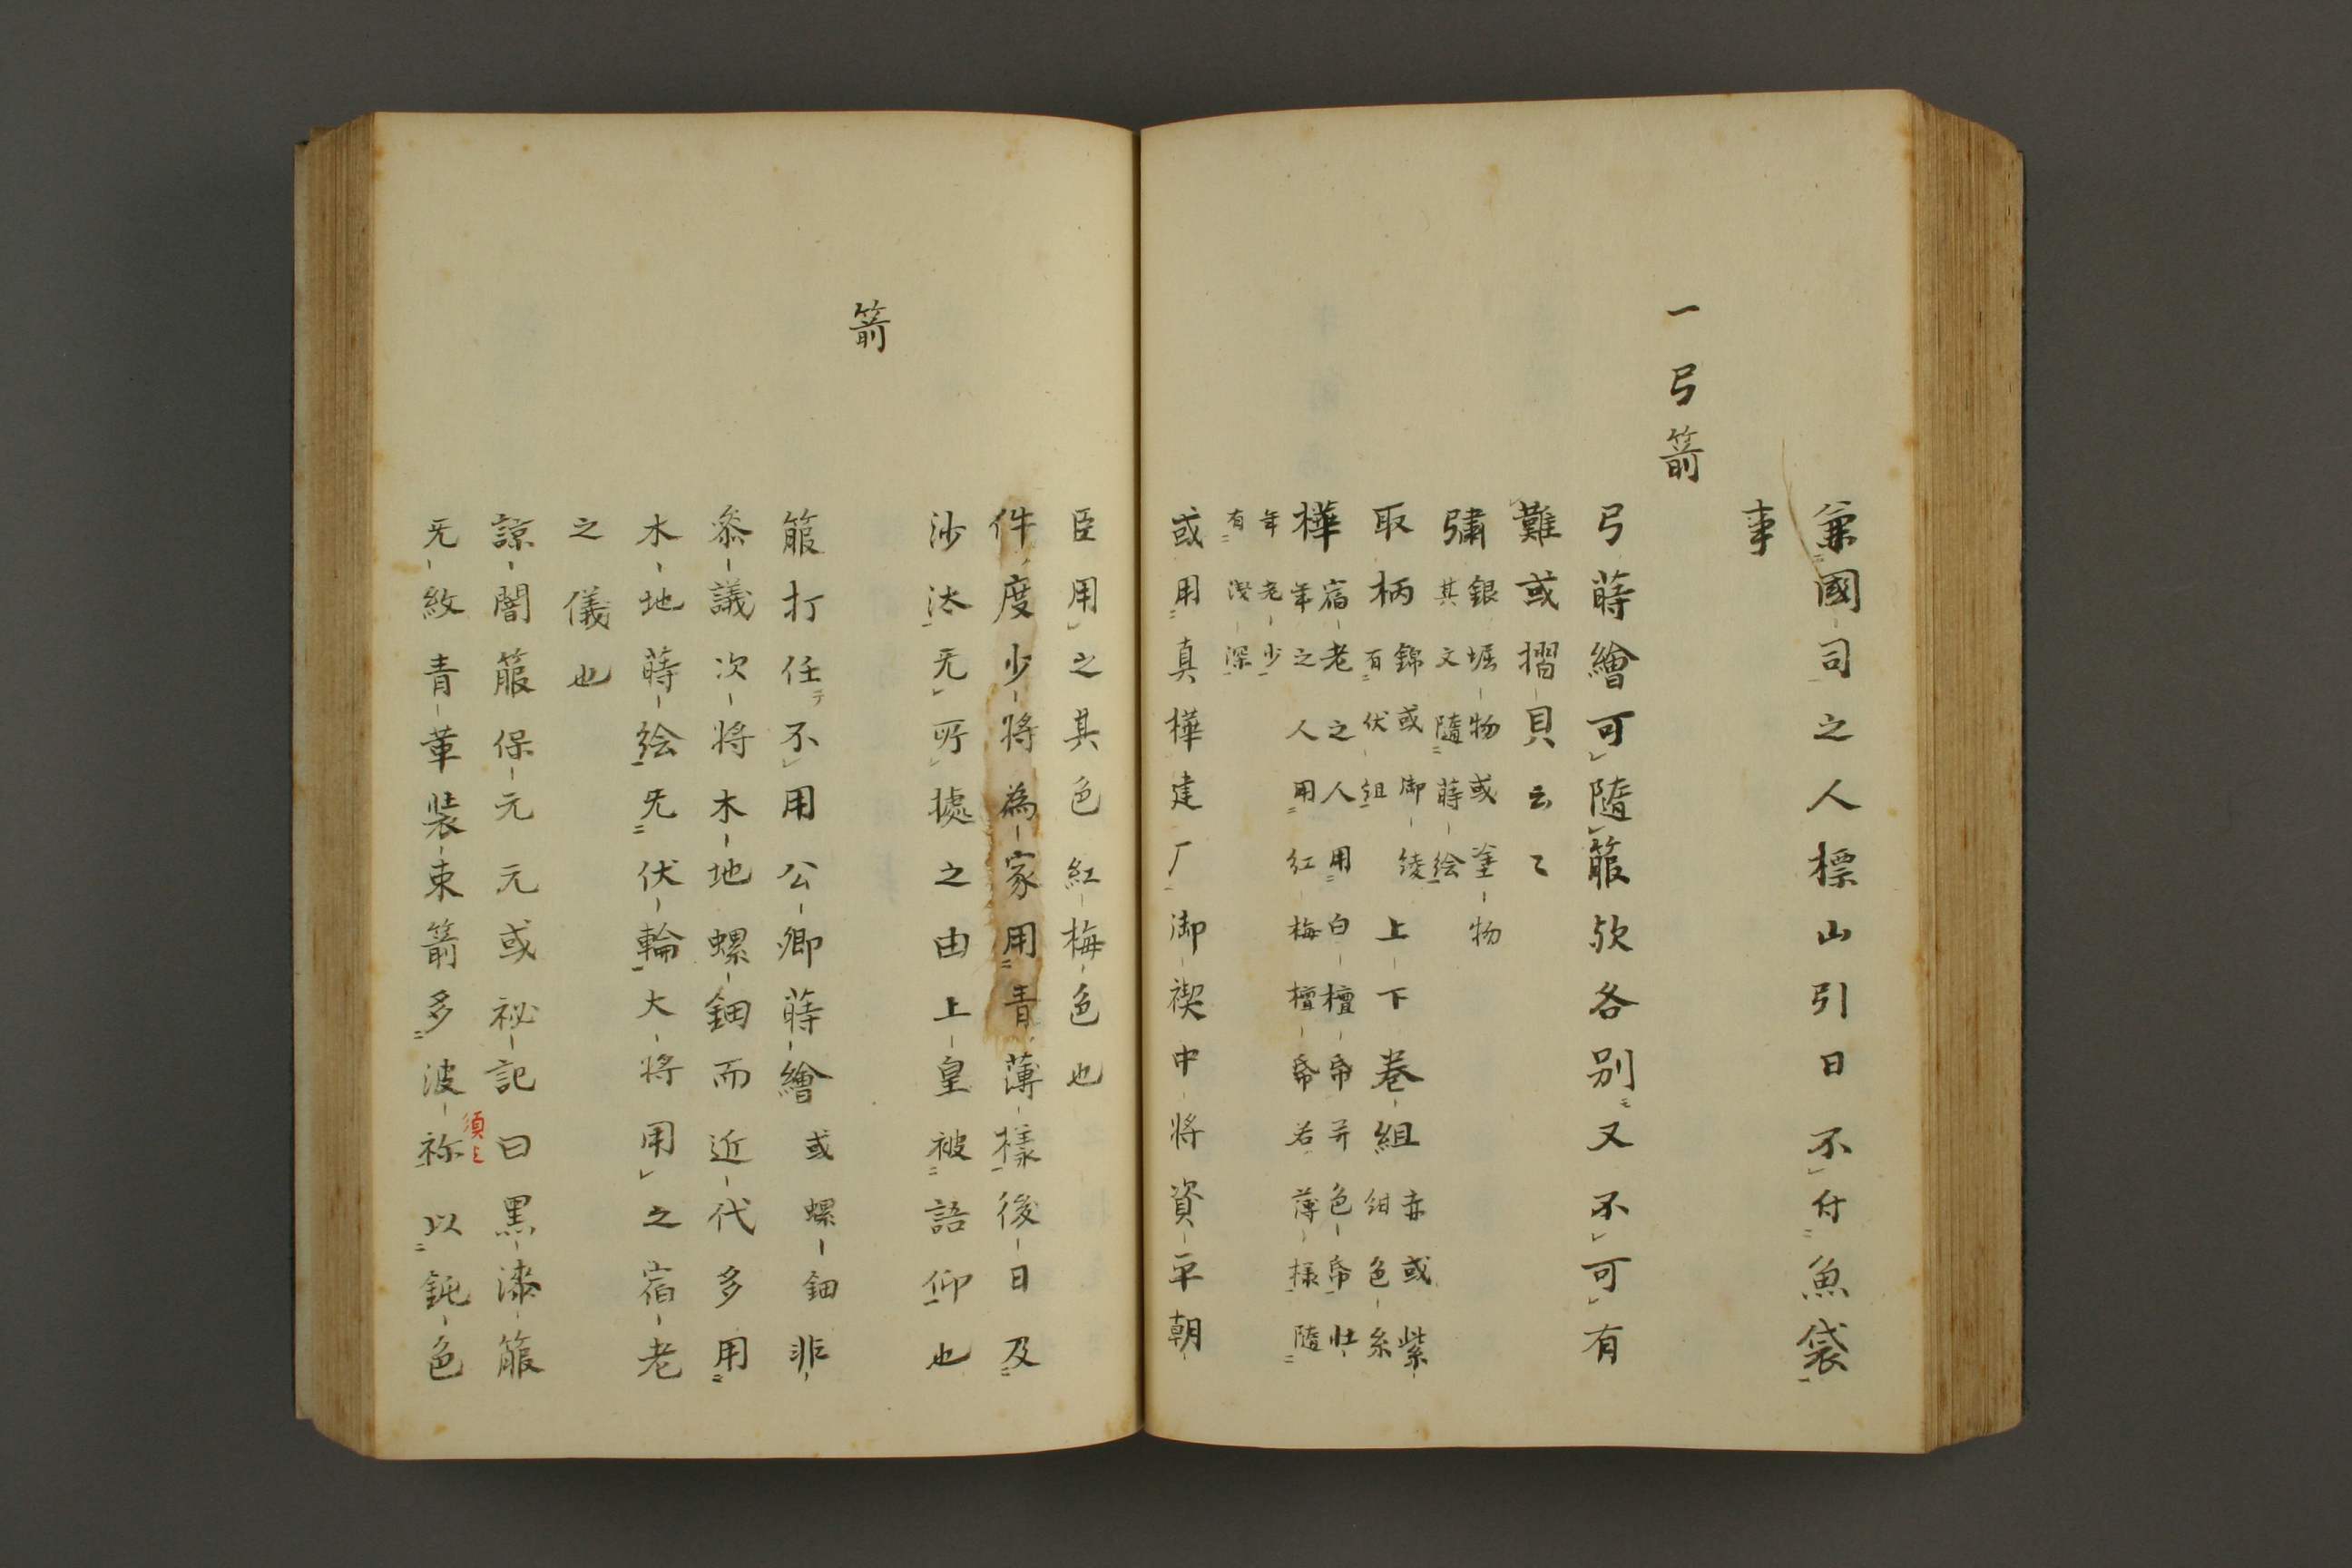 兼國司之人標山引日不付魚袋
事
一弓箭
弓蒔繪可隨箙欤各別又不可有
難或摺貝云々
彇 銀堀物或塗物
其文隨蒔絵
取柄 錦或御綾
有伏組 上下巻組 赤或紫
紺色糸
樺 宿老之人用白檀帋并色帋壮
年之人用紅梅檀帋若薄様隨
年老少
有浅深
或用真樺建厂御禊中将資平朝
臣用之其色紅梅色也
件度少将為家用青薄様後日及
沙汰无所據之由上皇被語仰也
箭
箙打任テ不用公卿蒔繪或螺鈿非
参議次将木地螺鈿而近代多用
木地蒔絵无伏輪大将用之宿老
之儀也
諒闇箙保元元或祕記曰黒漆箙
无紋青革装束箭多波祢以鈍色
須ミ